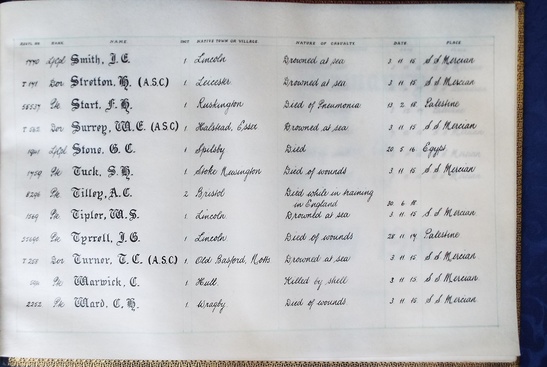 REGTL. NO RANK NAME UNIT NATIVE TOWN OR VILLAGE NATURE OF CASUALTY DATE PLACE
L/Cpl Smith, J. E. 1 Lincoln Drowned at sea 3 11 15 S.S Mercian
Dvr Stretton, H. (A.S.C) 1 Leicester Drowned at sea 3 11 15 S.S Mercian
Pte Start, F. H. 1 Ruskington Died of Pneumonia 13 2 18 Palestine
Dvr Surrey, W. E. (A.S.C) 1 Halstead, Essex Drowned at sea 3 11 15 S.S Mercian
L/Cpl Stone, G. C. 1 Spilsby Died 20 5 16 Egypt
Pte Tuck, S. H. 1 Stoke Newington Died of wounds 3 11 15 S.S Mercian
Pte Tilley, A. C. 2 Bristol Died while in training
in England 30 6 18
1569 Pte Tipler, W. S. 1 Lincoln Drowned at sea 3 11 15 S.S Mercian
Pte Tyrrell, J. G. 1 Lincoln Died of wounds 28 11 17 Palestine
Dvr Turner, T. C. (A.S.C) 1 Old Basford, Notts Drowned at sea 3 11 15 S.S Mercian
Pte Warwick, C. 1 Hull Killed by shell 3 11 15 S.S Mercian
2252 Pte Ward, C. H. 1 Wragby Died of wounds 3 11 15 S.S Mercian